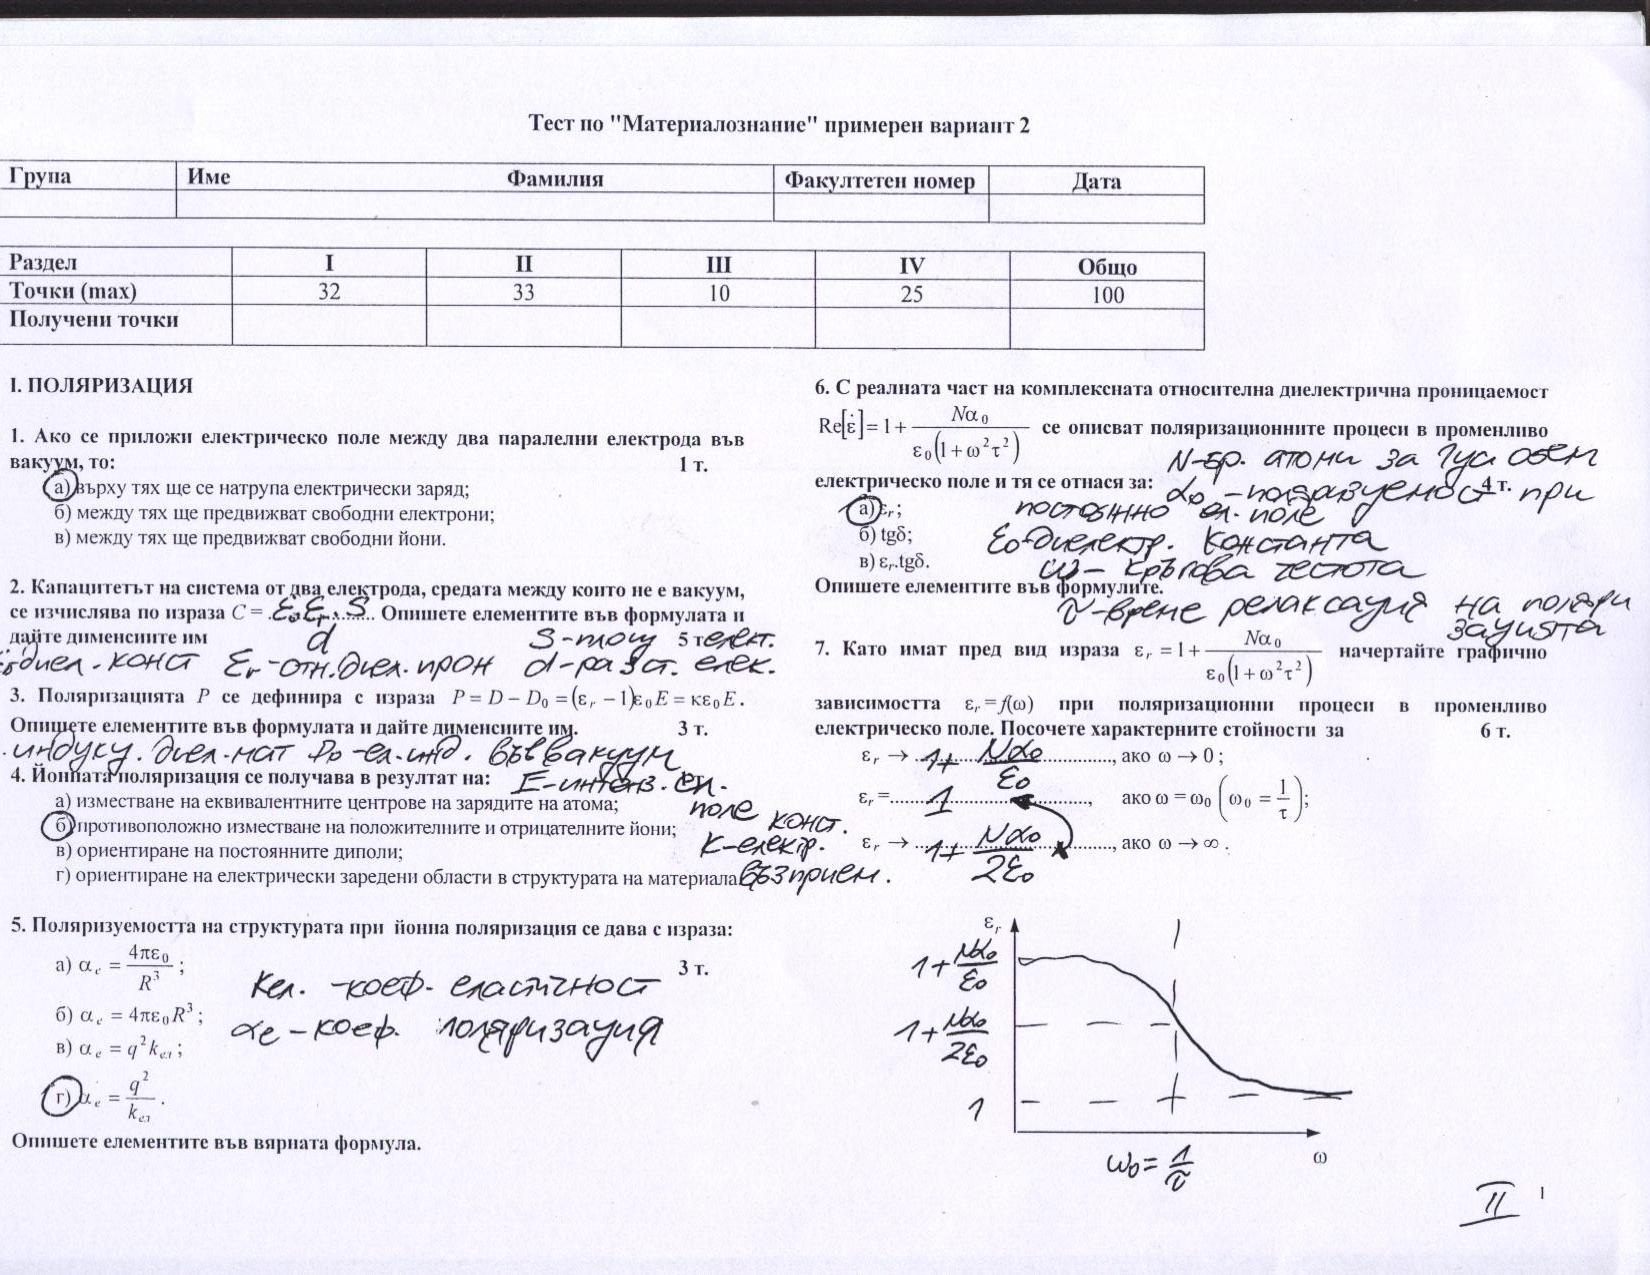 Тест по "Материалознание" примерен вариант 2
Група Име Фамилия Факултетен номер Дата
Раздел I II III IV Общо
Точки (max) 32 33 10 25 100
Получени точки
I. ПОЛЯРИЗАЦИЯ
1. Ако се приложи електрическо поле между два паралелни електрода във
вакуум, то: 1 т.
а) върху тях ще се натрупа електрически заряд;
б) между тях ще предвижват свободни електрони;
в) между тях ще предвижват свободни йони.
2. Капацитетът на система от два електрода, средата между които не е вакуум,
се изчислява по израза C = ε₀εᵣ.S Опишете елементите във формулата и
d
дайте дименсиите им S-площ 5 т елект.
диел. конст εᵣ-отн.диел.прон d-разст. елек.
3. Поляризацията P се дефинира с израза P = D − D₀ = (εᵣ − 1)ε₀E = κε₀E.
Опишете елементите във формулата и дайте дименсиите им. 3 т.
индукц. диел.мат D₀-ел.инд. във вакуум
4. Йонната поляризация се получава в резултат на: E-интенз. ел.
а) изместване на еквивалентните центрове на зарядите на атома; поле
б) противоположно изместване на положителните и отрицателните йони; конст.
в) ориентиране на постоянните диполи; K-електр.
г) ориентиране на електрически заредени области в структурата на материала възприем.
5. Поляризуемостта на структурата при йонна поляризация се дава с израза:
а) αₑ = 4πε₀/R³; 3 т.
Kел. -коеф. еластичност
б) αₑ = 4πε₀R³;
αe – коеф. поляризация
в) αₑ = q²kел;
г) αₑ = q²/kел.
Опишете елементите във вярната формула.
6. С реалната част на комплексната относителна диелектрична проницаемост
Re[ε̇] = 1 + Nα₀/ε₀(1 + ω²τ²) се описват поляризационните процеси в променливо
N-бр. атоми за 1 ус обем
електрическо поле и тя се отнася за: 4 т.
α₀ - поляризуемост при
а) εᵣ; постоянно ел. поле
б) tgδ; ε₀-диелектр. константа
в) εᵣ.tgδ. ω – кръгова честота
Опишете елементите във формулите.
τ-време релаксация на поляри
зацията
7. Като имат пред вид израза εᵣ = 1 + Nα₀/ε₀(1 + ω²τ²) начертайте графично
зависимостта εᵣ=f(ω) при поляризационни процеси в променливо
електрическо поле. Посочете характерните стойности за 6 т.
εᵣ → 1+ Nα₀/ε₀, ако ω → 0;
εᵣ = 1, ако ω = ω₀ (ω₀ = 1/τ);
εᵣ → 1+ Nα₀/2ε₀, ако ω → ∞.
εᵣ
1+ Nα₀/ε₀
1+ Nα₀/2ε₀
1
ω
ω₀ = 1/τ
II 1